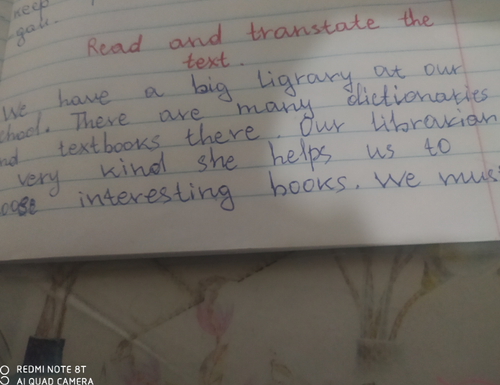 keep
gall.
Read and translate the
text.
We have a big ligrary at our
chool. There are many dictionaries
nd textbooks there. Our librarian
very kind she helps us to
oose interesting books. We mus
REDMI NOTE 8T
AI QUAD CAMERA